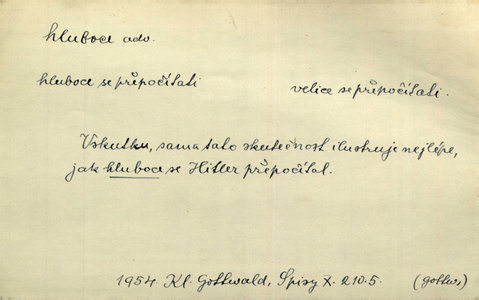 hluboce adv.
hluboce se přepočítati velice se přepočítati.
Vskutku, sama tato skutečnost ilustruje nejlépe,
jak hluboce se Hitler přepočítal.
1954 Kl. Gottwald, Spisy X. 210.5. (gottw.)